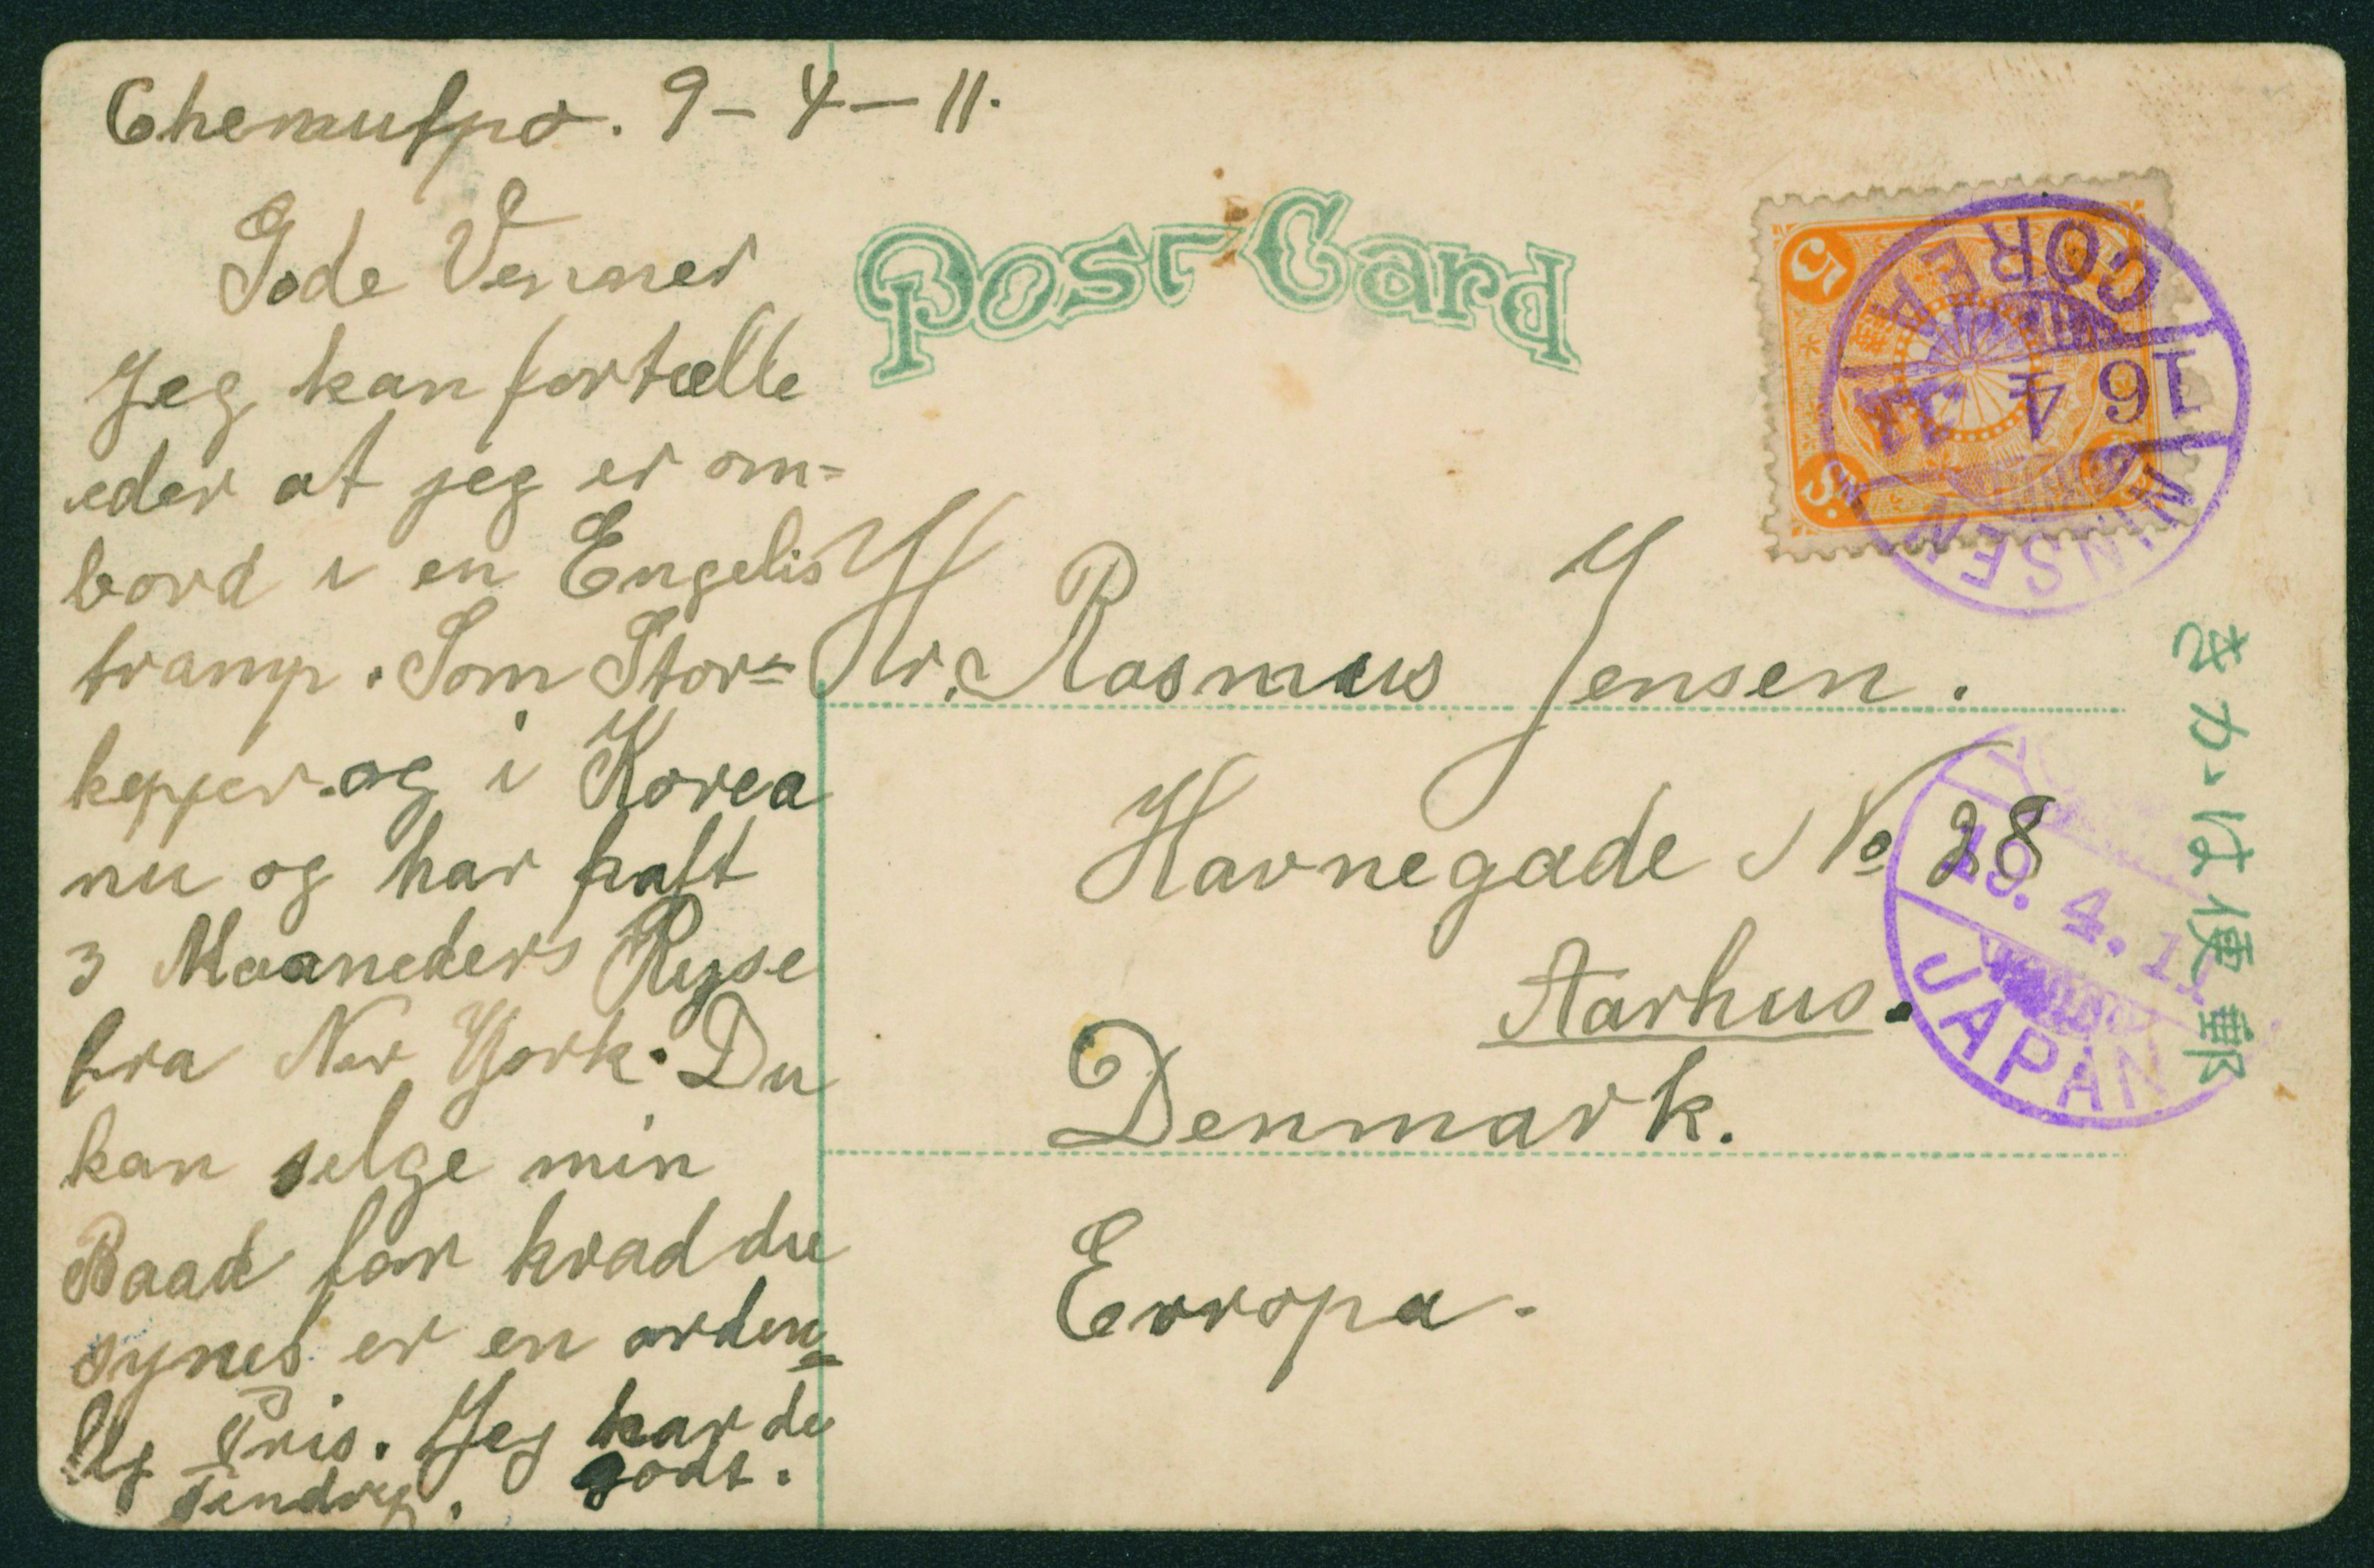 Chemulpo. 9-4-11.
Gode Venner
Jeg kan fortælle
eder at jeg er om=
bord i en Engelis
tramp. Som Stor=
kepper. og i Korea
nu og har haft
3 Maaneders Ryse
fra New York. Du
kan selge min
Baad for hvad du
synes er en orden=
lig Pris. Jeg har de
godt.
Post Card
5
5 Sn.
COREA
16 4 11
NINSEN
Hr. Rasmus Jensen.
Havnegade No 28
Aarhus.
Denmark.
Evropa.
19.4.11
JAPAN
きかは便郵